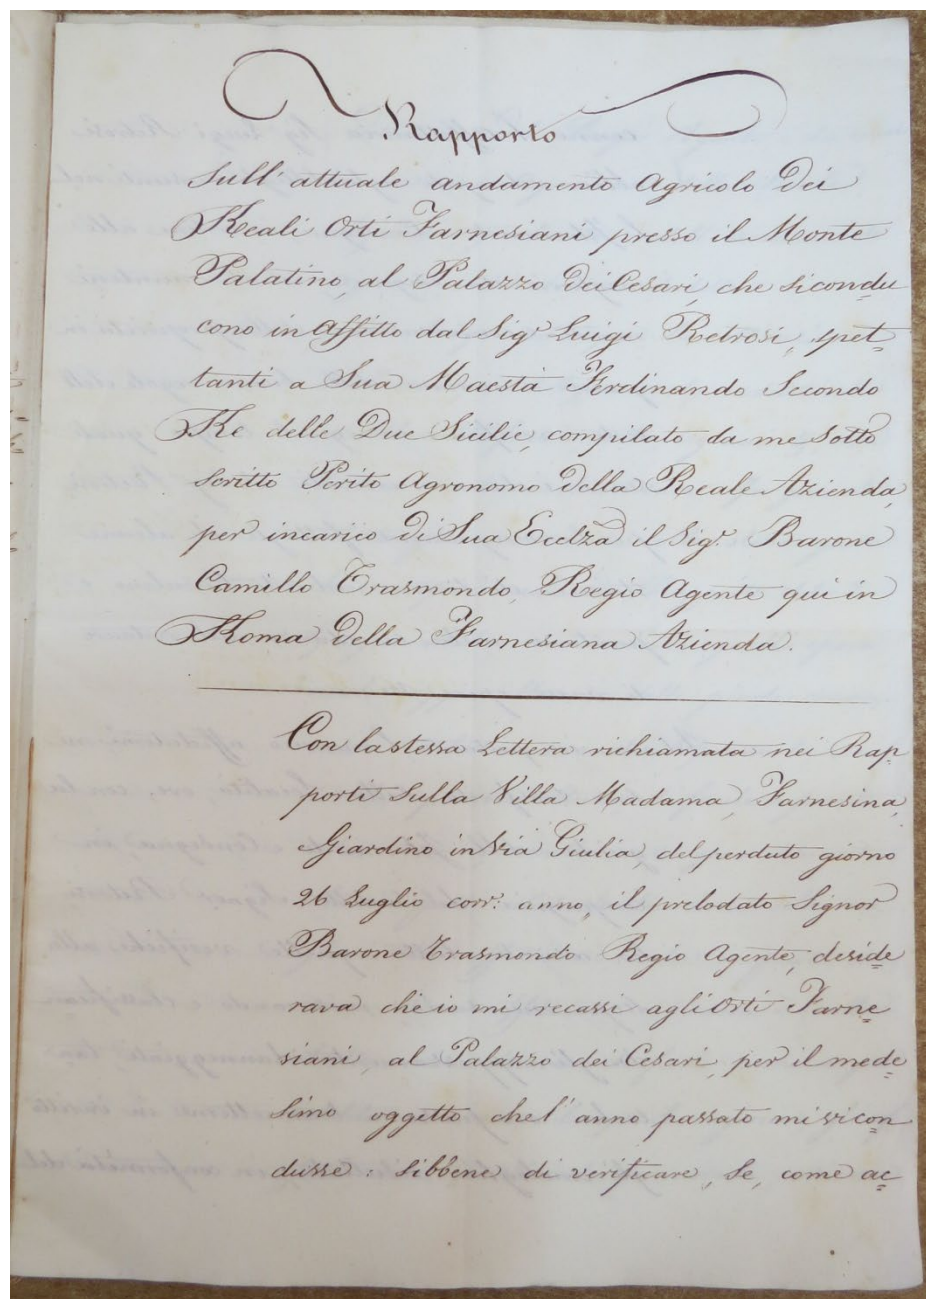 Rapporto
sull' attuale andamento Agricolo Dei
Reali Orti Farnesiani presso il Monte
Palatino, al Palazzo Dei Cesari, che si condu
cono in Affitto dal Sigr Luigi Retrosi, spet=
tanti a Sua Maestà Ferdinando Secondo
Re delle Due Sicilie, compilato da me sotto
scritto Perito Agronomo Della Reale Azienda,
per incarico di Sua Ecclza il Sigr. Barone
Camillo Trasmondo, Regio Agente qui in
Roma Della Farnesiana Azienda.
Con la stessa Lettera richiamata nei Rap=
porti sulla Villa Madama, Farnesina,
Giardino in Via Giulia, del perduto giorno
26 Luglio corr: anno, il prelodato Signor
Barone Trasmondo Regio Agente, deside=
rava che io mi recassi agli Orti Farne=
siani, al Palazzo dei Cesari, per il mede=
simo oggetto che l' anno passato mi vi con=
dusse: sibbene di verificare, se, come ac=